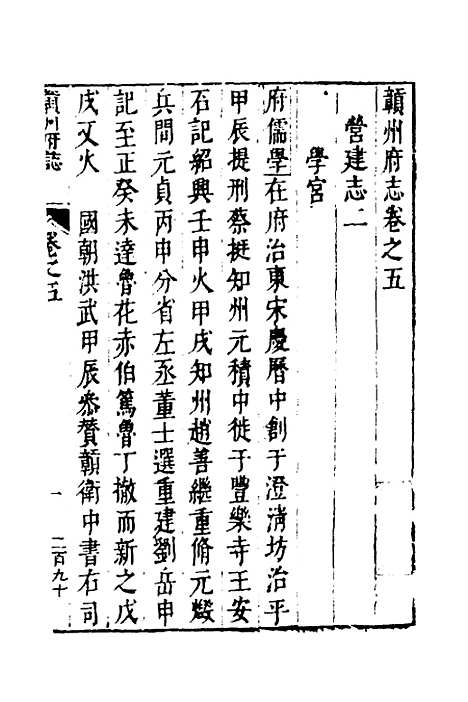 贛州府志卷之五
營建志二
學宮
府儒學在府治東宋慶曆中創于澄清坊治平
甲辰提刑蔡挺知州元積中徙于豐樂寺王安
石記紹興壬申火甲戌知州趙善繼重脩元燬
兵間元貞丙申分省左丞董士選重建劉岳申
記至正癸未達魯花赤伯篤魯丁撤而新之戊
戌又火 國朝洪武甲辰叅贊贛衛中書右司
贛州府誌 卷之五 一 二百九十